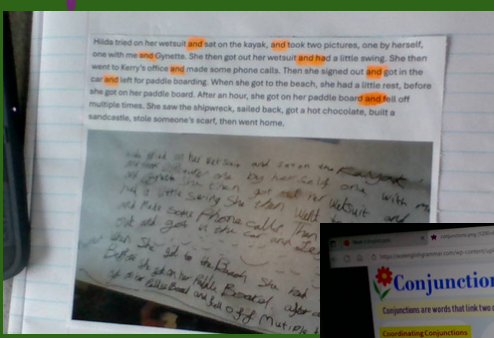 Hilda tried on her wetsuit and sat on the kayak, and took two pictures, one by herself,
one with me and Gynette. She then got out her wetsuit and had a little swing. She then
went to Kerry's office and made some phone calls. Then she signed out and got in the
car and left for paddle boarding. When she got to the beach, she had a little rest, before
she got on her paddle board. After an hour, she got on her paddle board and fell off
multiple times. She saw the shipwreck, sailed back, got a hot chocolate, built a
sandcastle, stole someone's scarf, then went home.
on her wetsuit and sat on the Kayak
one by herself one with m
She then got her wetsuit and
a little swing She then went
and make some Phone calls Then
out and got in the car and
she got to the Beach she had
Before she got on her Paddle Board after
Paddle Board and fell off Mutiple
Conjunction
Conjunctions are words that link two
Coordinating Conjunctions